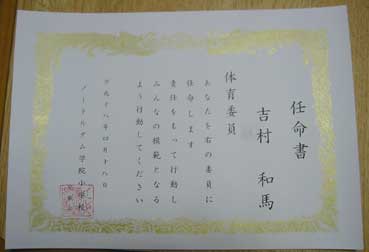 任命書
吉村 和馬
体育委員
あなたを右の委員に
任命します
責任をもって行動し
みんなの模範となる
よう行動してください
平成十八年四月十八日
ノートルダム学院小学校